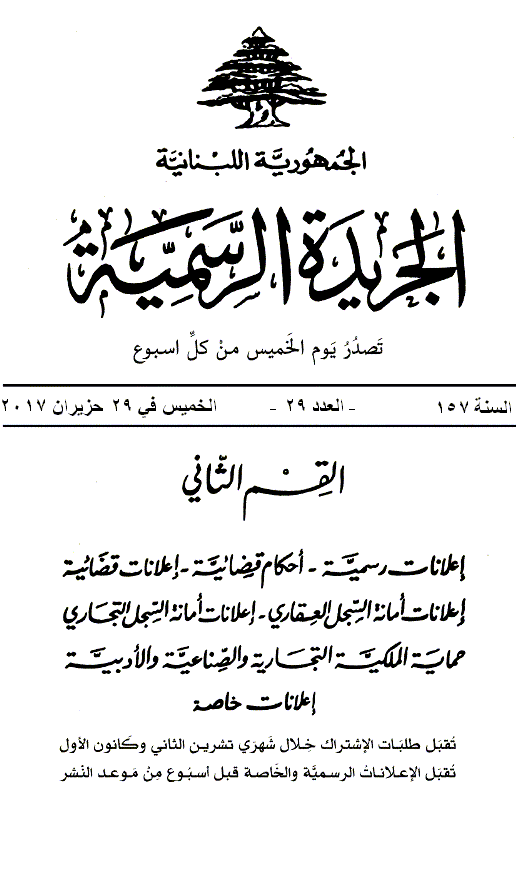 الجمهورية اللبنانية
الجريدة الرسمية
تَصدُرُ يَوم الخَميس منْ كلِّ اسبوع
السنة ١٥٧ - العدد ٢٩ - الخميس في ٢٩ حزيران ٢٠١٧
القِسْم الثّاني
إعلانات رسميَّة - أحكام قضائيَّة - إعلانات قضائية
إعلانات أمانة السِّجل العِقاري - إعلانات أمانة السِّجل التجاري
حماية الملكيَّة التجارية والصِّناعيَّة والأدبيَّة
إعلانات خاصة
تُقبَل طلبَات الإشتراك خِلال شَهرَي تشرين الثاني وكَانون الأول
تُقبَل الإعلانات الرسميَّة والخَاصة قبل أسبُوع مِنْ مَوعد النّشر